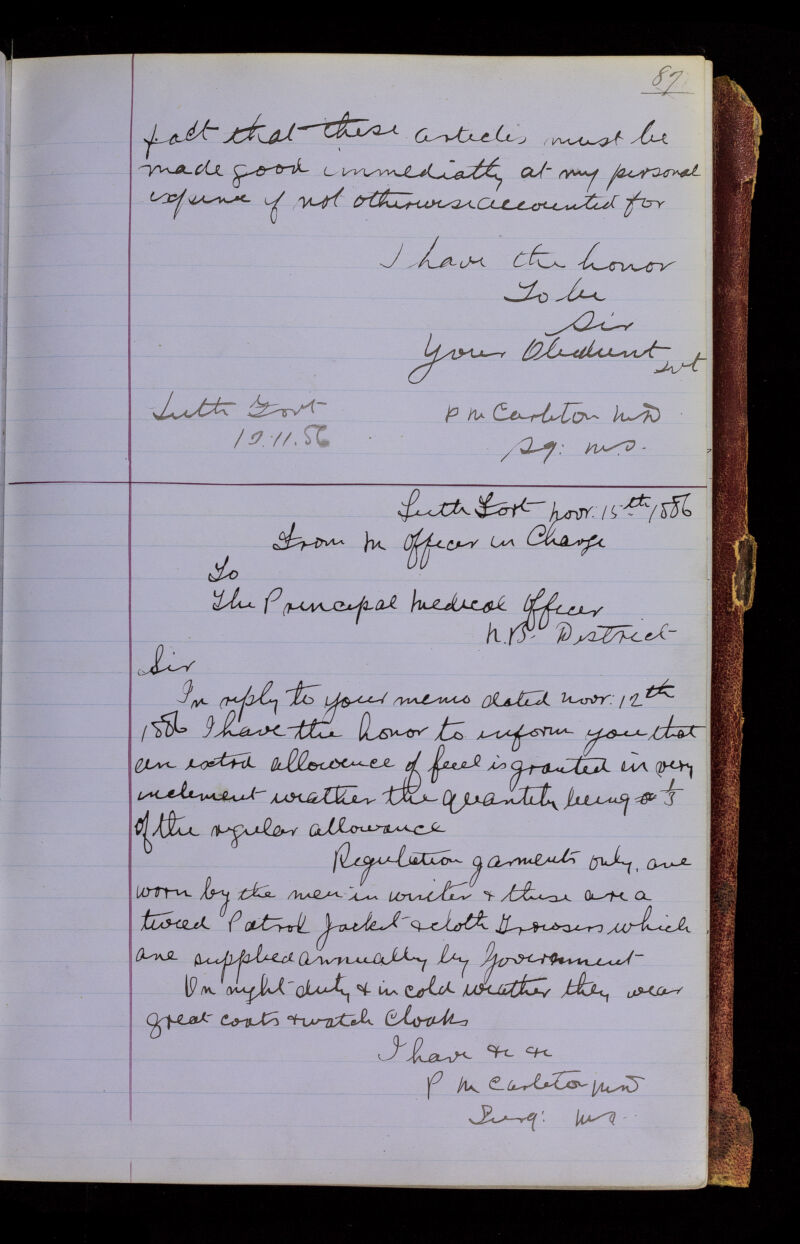 87
fact that these articles must be
made good immediatly at my personal
expense if not otherwise accounted for
I have the honor
To be
Sir
Your Obedient
Svt
Leith Fort
P M Carleton MD
12.11.86
Sg: M.S.
Leith Fort Novr. 15th 1886
From M Officer in Charge
To
The Principal Medical Officer
N.B. District
Sir
In reply to your memo dated Novr. 12th
1886 I have the honor to inform you that
an extra allowence of fuel is granted in very
inclement weather the quantity being 1/3
of the regular allowance
Regulation garments only, are
worn by the men in winter & these are a
tweed Patrol Jacket & cloth Trowsers which
are supplied annually by Government
On night duty & in cold weather they wear
great coats & watch Cloaks
I have &c &c
P M Carleton MD
Surg: MS.